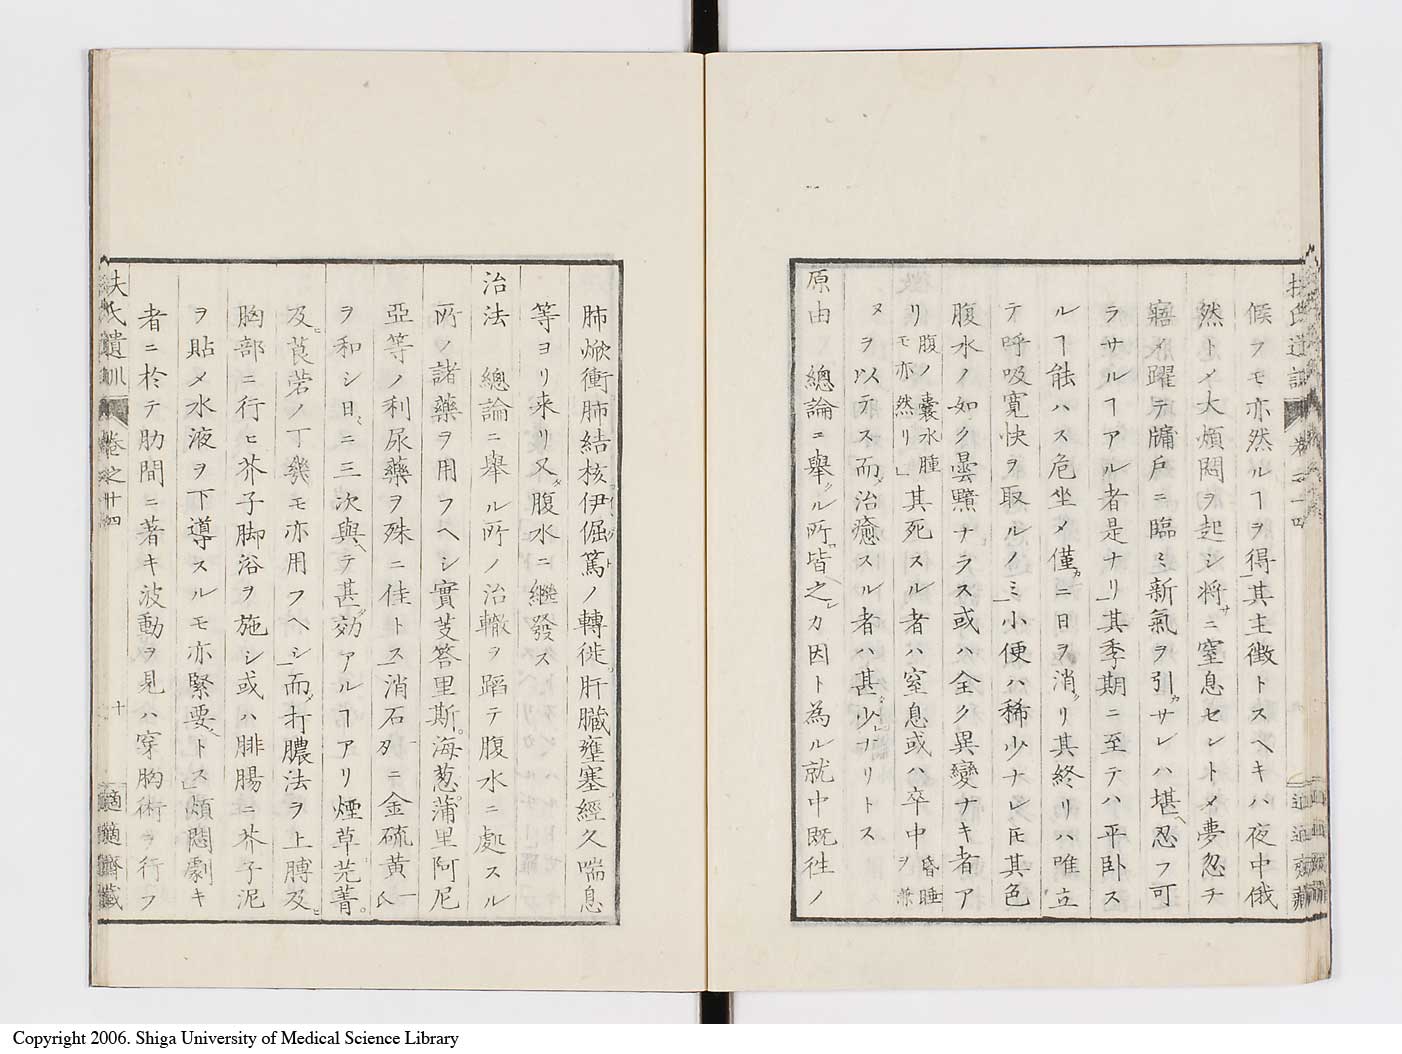 候フモ亦然ルヿヲ得其主徴トスヘキハ夜中俄
然トメ大煩悶ヲ起シ将ニ窒息セントメ夢忽チ
寤メ躍テ牗戸ニ臨ミ新氣ヲ引サレハ堪忍フ可
ラサルヿアル者是ナリ其季期ニ至テハ平卧ス
ルヿ能ハス危坐メ僅ニ日ヲ消リ其終リハ唯立
テ呼吸寛快ヲ取ルノミ小便ハ稀少ナレ𪜈其色
腹水ノ如ク曇黯ナラス或ハ全ク異變ナキ者ア
リ腹ノ嚢水腫モ亦然リ」其死スルハ者窒息或ハ卒中昏睡ヲ兼
ヌヲ以テス而治癒スル者ハ甚少ナリトス
原由 總論ニ舉ル所皆之カ因ト為ル就中既徃ノ
肺焮衝肺結核伊倔篤ノ轉徙肝臓壅塞經久喘息
等ヨリ来リ又腹水ニ繼發ス
治法 總論ニ舉ル所ノ治轍ヲ蹈テ腹水ニ處スル
所ノ諸藥ヲ用フヘシ實芰答里斯海葱蒲里阿尼
亞等ノ利尿藥ヲ殊ニ佳トス消石夕ニ金硫黄一氏
ヲ和シ日ニ三次與テ甚効アルヿアリ煙草芫菁
及莨菪ノ丁幾モ亦用フヘシ而打膿法ヲ上膊及
胸部ニ行ヒ芥子脚浴ヲ施シ或ハ腓腸ニ芥子泥
ヲ貼メ水液ヲ下導スルモ亦緊要トス」煩悶劇キ
者ニ於テ肋間ニ著キ波動ヲ見ハ穿胸術ヲ行フ
扶氏遺訓 卷之十四 十 適適齋藏
Copyright 2006. Shiga University of Medical Science Library